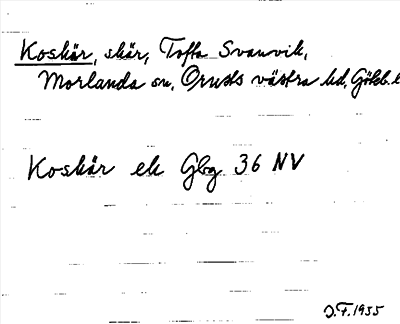 Koskär, skär, Tofta Svanvik,
Morlanda sn, Orusts västra hd, Göteb.
Koskär ek Gbg 36 NV
J.F. 1955